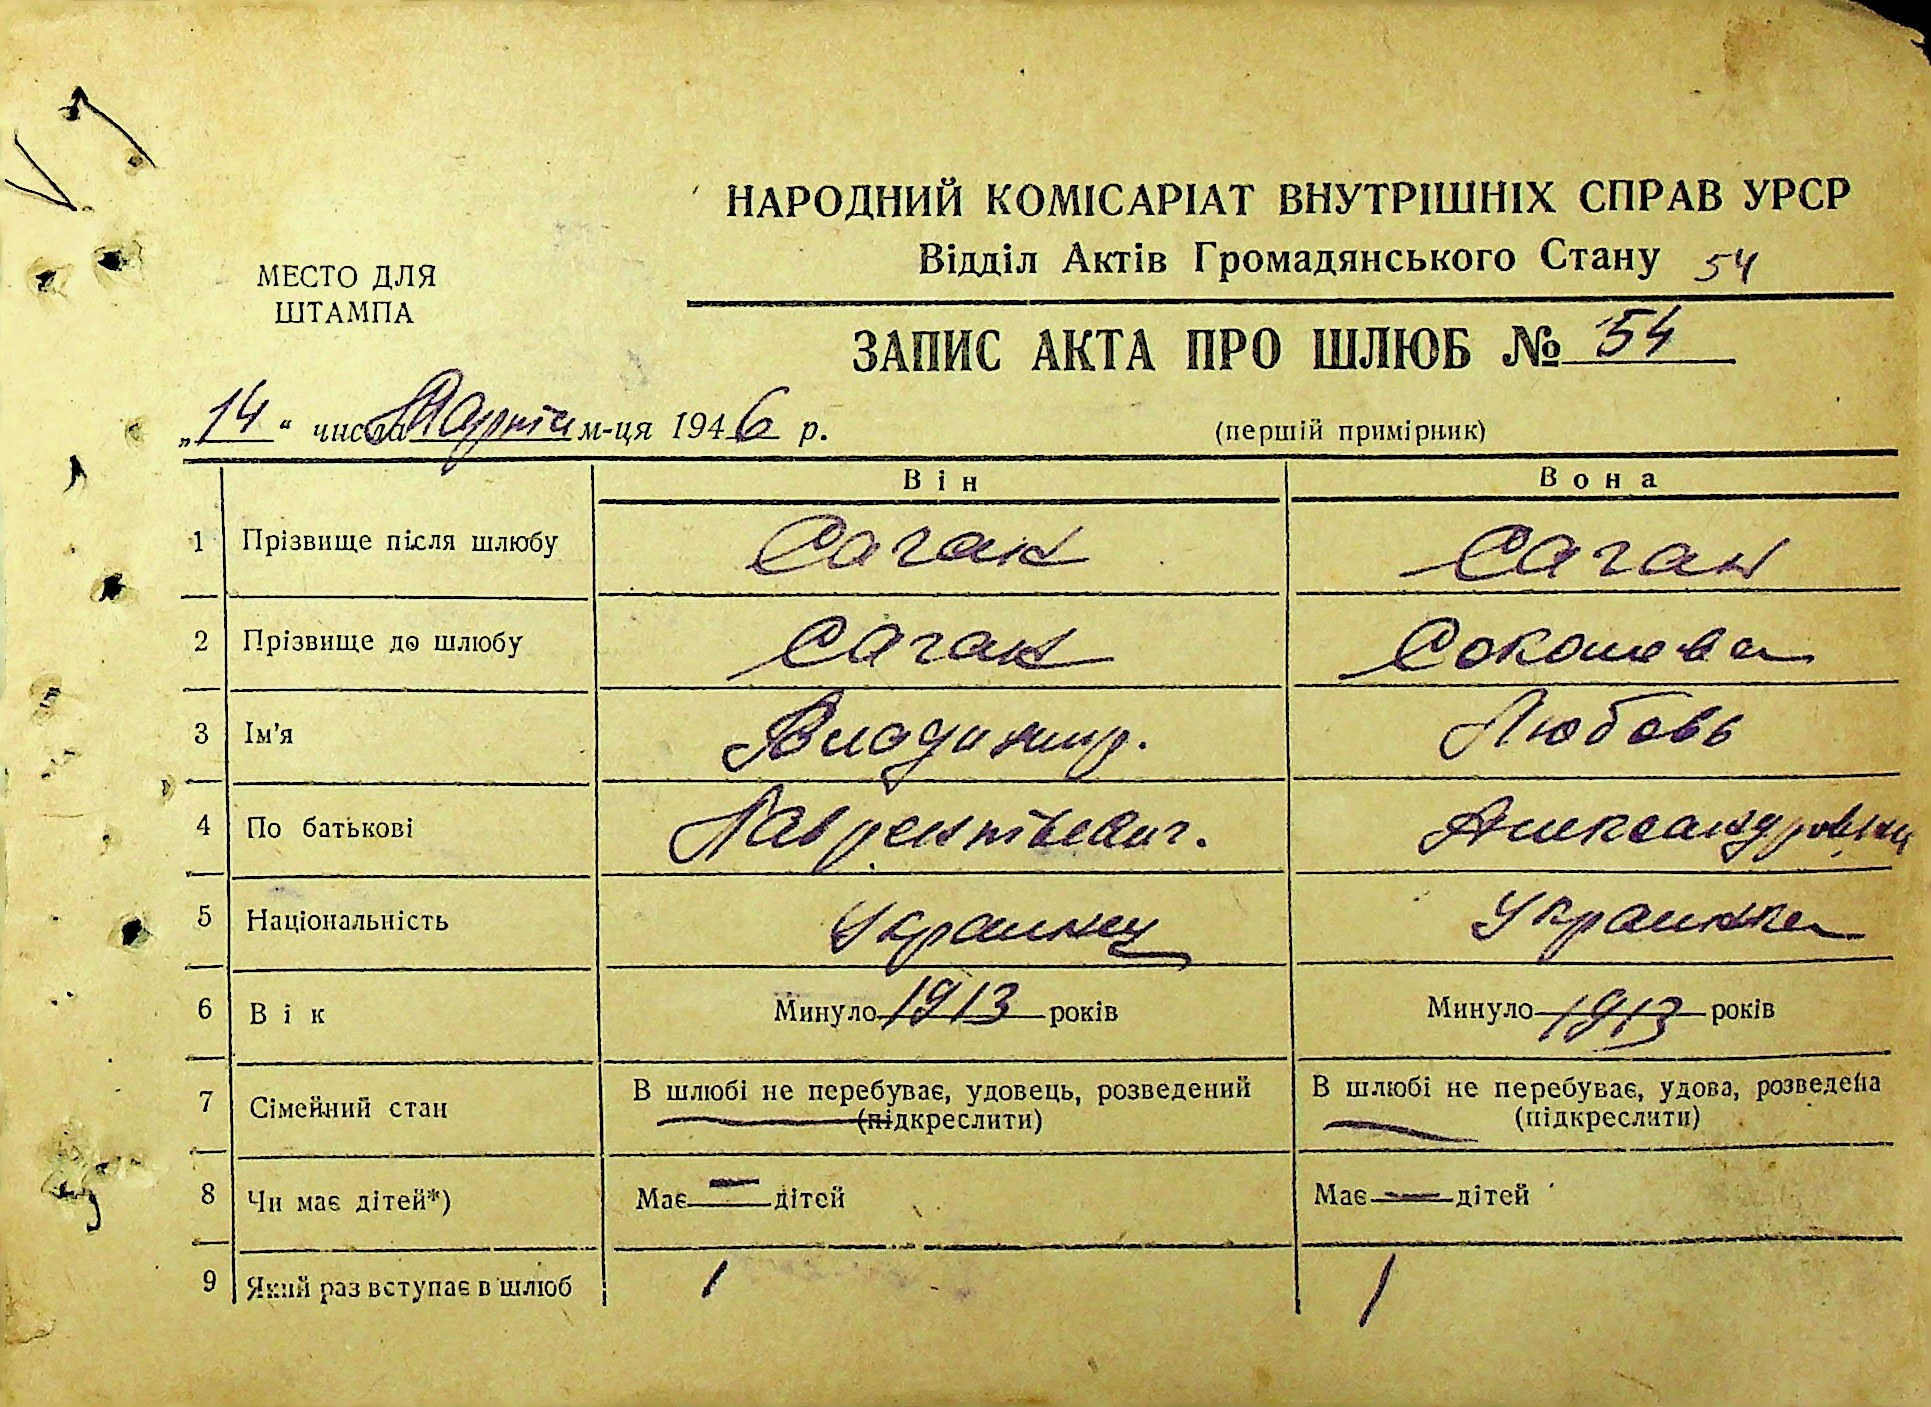 НАРОДНИЙ КОМІСАРІАТ ВНУТРІШНІХ СПРАВ УРСР
Відділ Актів Громадянського Стану 54
МЕСТО ДЛЯ
ШТАМПА
ЗАПИС АКТА ПРО ШЛЮБ № 54
„14“ числа м-ця 1946 р.
(першій примірник)
Він Вона
1 Прізвище після шлюбу Сагак Сагак
2 Прізвище до шлюбу Сагак
3 Ім'я Владимир. Любовь
4 По батькові Лаврентьевич. Александровна
5 Національність Украинец Украинка
6 Вік Минуло 1913 років Минуло 1913 років
7 Сімейний стан В шлюбі не перебуває, удовець, розведений В шлюбі не перебуває, удова, розведена
(підкреслити) (підкреслити)
8 Чи має дітей*) Має — дітей Має — дітей
9 Який раз вступає в шлюб 1 1